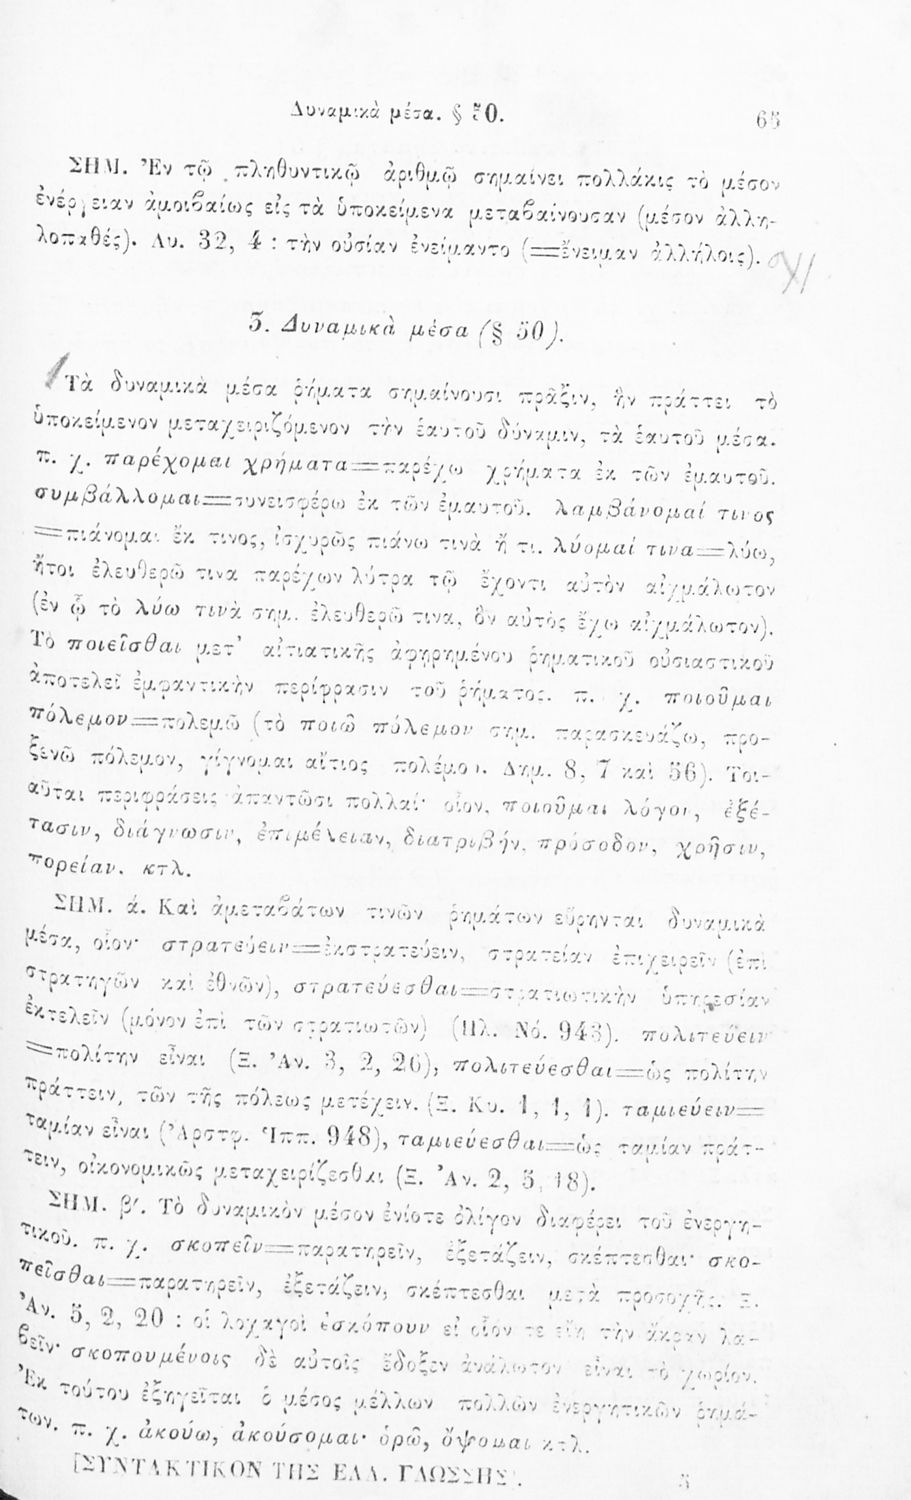 Δυναμικὰ μέσα. § 50. 65
ΣΗΜ. Ἐν τῷ πληθυντικῷ ἀριθμῷ σημαίνει πολλάκις τὸ μέσον
ἐνέργειαν ἀμοιβαίως εἰς τὰ ὑποκείμενα μεταβαίνουσαν (μέσον ἀλλη-
λοπαθές). Λυ. 32, 4 : τὴν οὐσίαν ἐνείμαντο (=ἔνειμαν ἀλλήλοις).
5. Δυναμικὰ μέσα (§ 50).
Τὰ δυναμικὰ μέσα ῥήματα σημαίνουσι πρᾶξιν, ἣν πράττει τὸ
ὑποκείμενον μεταχειριζόμενον τὴν ἑαυτοῦ δύναμιν, τὰ ἑαυτοῦ μέσα.
π. χ. παρέχομαι χρήματα=παρέχω χρήματα ἐκ τῶν ἐμαυτοῦ.
συμβάλλομαι=συνεισφέρω ἐκ τῶν ἐμαυτοῦ. λαμβάνομαί τινος
=πιάνομαι ἔκ τινος, ἰσχυρῶς πιάνω τινὰ ἤ τι. λύομαί τινα=λύω,
ἤτοι ἐλευθερῶ τινα παρέχων λύτρα τῷ ἔχοντι αὐτὸν αἰχμάλωτον
(ἐν ᾧ τὸ λύω τινὰ σημ. ἐλευθερῶ τινα, ὃν αὐτὸς ἔχω αἰχμάλωτον).
Τὸ ποιεῖσθαι μετ' αἰτιατικῆς ἀφῃρημένου ῥηματικοῦ οὐσιαστικοῦ
ἀποτελεῖ ἐμφαντικὴν περίφρασιν τοῦ ῥήματος. π. χ. ποιοῦμαι
πόλεμον=πολεμῶ (τὸ ποιῶ πόλεμον σημ. παρασκευάζω, προ-
ξενῶ πόλεμον, γίγνομαι αἴτιος πολέμου. Δημ. 8, 7 καὶ 56). Τοι-
αῦται περιφράσεις ἀπαντῶσι πολλαί· οἷον, ποιοῦμαι λόγον, ἐξέ-
τασιν, διάγνωσιν, ἐπιμέλειαν, διατριβήν, πρόσοδον, χρῆσιν,
πορείαν. κτλ.
ΣΗΜ. ά. Καὶ ἀμεταβάτων τινῶν ῥημάτων εὕρηνται δυναμικὰ
μέσα, οἷον· στρατεύειν=ἐκστρατεύειν, στρατείαν ἐπιχειρεῖν (ἐπὶ
στρατηγῶν καὶ ἐθνῶν), στρατεύεσθαι=στρατιωτικὴν ὑπηρεσίαν
ἐκτελεῖν (μόνον ἐπὶ τῶν στρατιωτῶν) (Πλ. Νό. 943). πολιτεύειν
=πολίτην εἶναι (Ξ. Ἀν. 3, 2, 26), πολιτεύεσθαι=ὡς πολίτην
πράττειν, τῶν τῆς πόλεως μετέχειν. (Ξ. Κυ. 1, 1, 1). ταμιεύειν=
ταμίαν εἶναι (Ἀρστφ. Ἱππ. 948), ταμιεύεσθαι=ὡς ταμίαν πράτ-
τειν, οἰκονομικῶς μεταχειρίζεσθαι (Ξ. Ἀν. 2, 5, 18).
ΣΗΜ. β'. Τὸ δυναμικὸν μέσον ἐνίοτε ὀλίγον διαφέρει τοῦ ἐνεργη-
τικοῦ. π. χ. σκοπεῖν=παρατηρεῖν, ἐξετάζειν, σκέπτεσθαι· σκο-
πεῖσθαι=παρατηρεῖν, ἐξετάζειν, σκέπτεσθαι μετὰ προσοχῆς. Ξ.
Ἀν. 5, 2, 20 : οἱ λοχαγοὶ ἐσκόπουν εἰ οἷόν τε εἴη τὴν ἄκραν λα-
βεῖν· σκοπουμένοις δὲ αὐτοῖς ἔδοξεν ἀνάλωτον εἶναι τὸ χωρίον.
Ἐκ τούτου ἐξηγεῖται ὁ μέσος μέλλων πολλῶν ἐνεργητικῶν ῥημά-
των. π. χ. ἀκούω, ἀκούσομαι· ὁρῶ, ὄψομαι κτλ.
[ΣΥΝΤΑΚΤΙΚΟΝ ΤΗΣ ΕΛΛ. ΓΛΩΣΣΗΣ]. 5